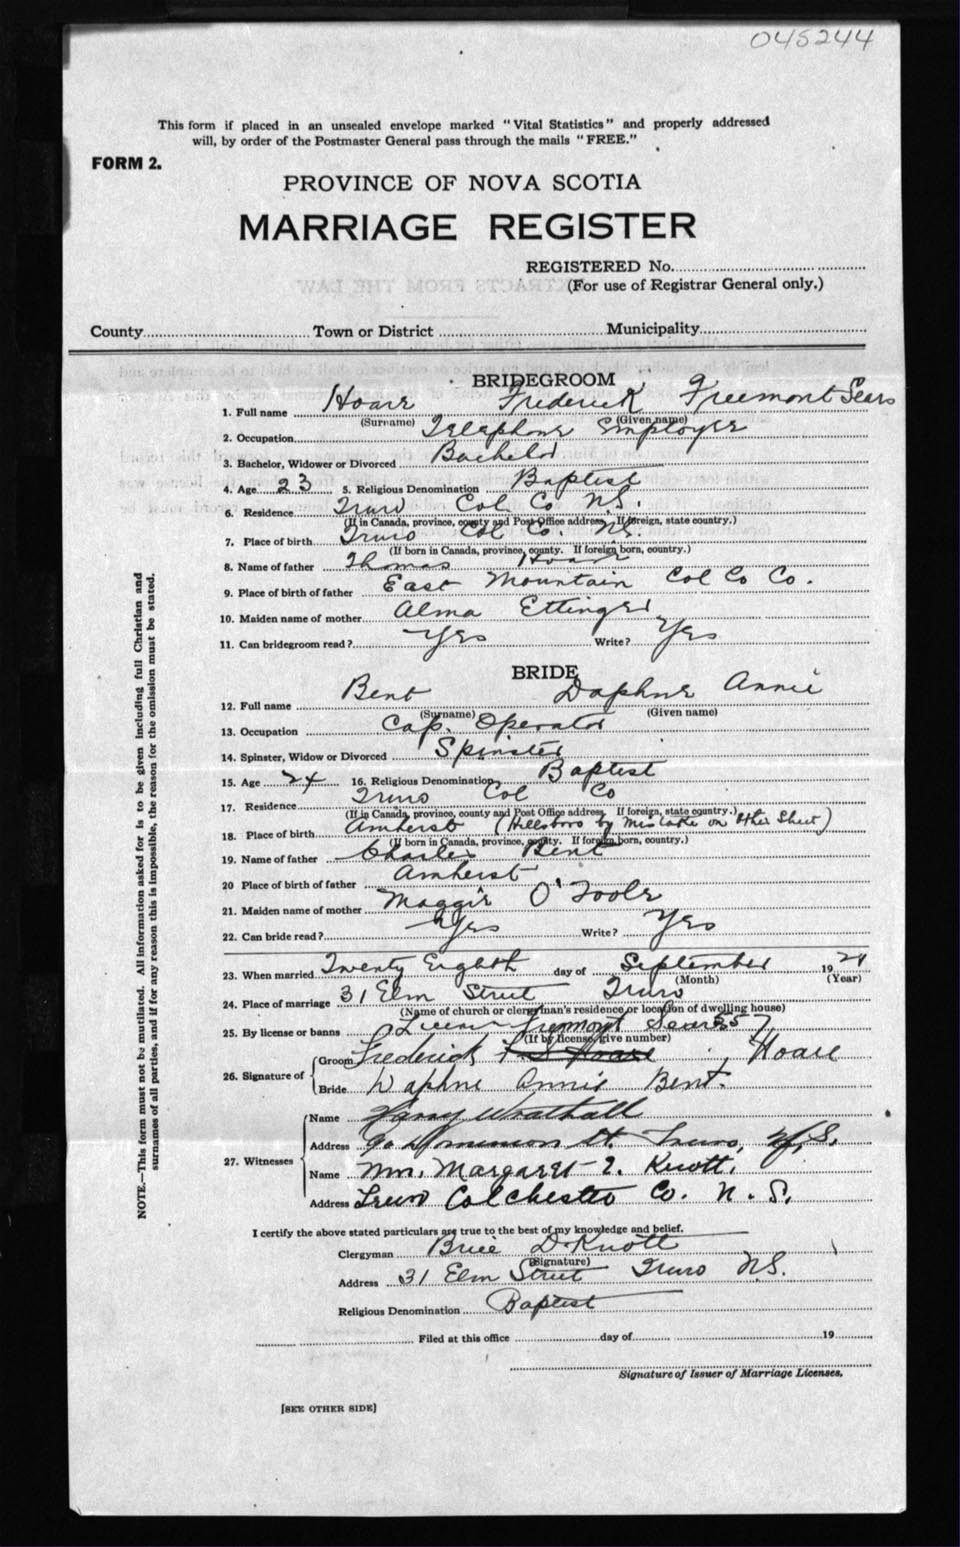 045244
This form if placed in an unsealed envelope marked "Vital Statistics" and properly addressed
will, by order of the Postmaster General pass through the mails "FREE."
FORM 2.
PROVINCE OF NOVA SCOTIA
MARRIAGE REGISTER
REGISTERED No.
(For use of Registrar General only.)
County Town or District Municipality
BRIDEGROOM
1. Full name Hoare Frederick Freemont Sears
(Surname) (Given name)
2. Occupation Telephone Employee
3. Bachelor, Widower or Divorced Bachelor
4. Age 23 5. Religious Denomination Baptist
6. Residence Truro Col. Co. N.S.
(If in Canada, province, county and Post Office address. If foreign, state country.)
7. Place of birth Truro Col Co. N.S.
(If born in Canada, province, county. If foreign born, country.)
8. Name of father Thomas Hoare
9. Place of birth of father East Mountain Col Co Co.
10. Maiden name of mother Alma Ettinger
11. Can bridegroom read? Yes Write? Yes
BRIDE
12. Full name Bent Daphne Annie
(Surname) (Given name)
13. Occupation Cap. Operator
14. Spinster, Widow or Divorced Spinster
15. Age 24 16. Religious Denomination Baptist
17. Residence Truro Col Co
(If in Canada, province, county and Post Office address. If foreign, state country.)
18. Place of birth Amherst (Hillsboro by mistake on other sheet)
(If born in Canada, province, county. If foreign born, country.)
19. Name of father Charles Bent
20 Place of birth of father Amherst
21. Maiden name of mother Maggie O'Toole
22. Can bride read? Yes Write? Yes
23. When married Twenty Eighth day of September 19
(Month) (Year)
24. Place of marriage 31 Elm Street Truro
(Name of church or clergyman's residence or location of dwelling house)
25. By license or banns
(If by license, give number)
26. Signature of Groom Frederick Fremont Sears Hoare
Bride Daphne Annie Bent.
27. Witnesses Name Harry Wrathall
Address 90 Dominion St. Truro, N.S.
Name Mrs. Margaret E. Knott.
Address Truro Colchester Co. N.S.
I certify the above stated particulars are true to the best of my knowledge and belief.
Clergyman Brice D. Knott
(Signature)
Address 31 Elm Street Truro N.S.
Religious Denomination Baptist
Filed at this office day of 19
Signature of Issuer of Marriage Licenses.
[SEE OTHER SIDE]
NOTE.—This form must not be mutilated. All information asked for is to be given including full Christian and
surnames of all parties, and if for any reason this is impossible, the reason for the omission must be stated.